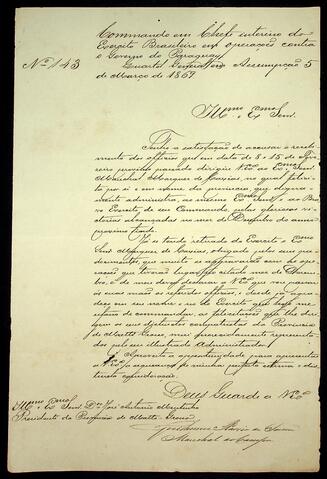 Commando em Chefe interino do
Exercito Brasileiro em operações contra
o Governo do Paraguay
Nº 143
Quartel General em Assumpção 5
de Março de 1869
Illmo e Exmo Senr.
Tenho a satisfação de accusar o recebi-
mento dos officios que em data de 8 e 15 de Fe-
vereiro proximo passado dirigio V Exª ao Exmo Senr
Marechal Marquez de Caxias, no qual felici-
ta por si e em nome da provincia, que digna-
mente administra, ao mesmo Exmo Senr. e ao Bra-
vo Exercito de seu Commando pelas gloriosas vic-
torias alcançadas no mez de Dezembro do anno
proximo findo.
Já se tendo retirado do Exercito o Exmo
Senr Marquez de Caxias, obrigado pelos seus pa-
decimentos, que muito se aggravaram com as ope-
rações que tiveram lugar no citado mez de Dezem-
bro, e de mez
os referidos officios,
e do Exercito que
de commandar, as felicitações que lhe diri-
gem os seus
da Provincia
de Matto Grosso,
dos pelo seu illustrado Administrador.
Aproveito a opportunidade para apresentar
a V Exª a segurança de minha perfeita estima e dis-
tincta consideração.
Deus Guarde a V Exª
Illmo e Exmo Senr. Dr José Antonio Murtinho
Presidente da Provincia de Matto-Grosso
Guilherme Xavier de Souza
Marechal de Campo